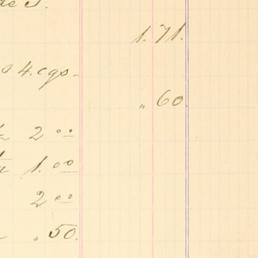 1.71.
4. cgs.
„ 60.
2 00
1.00
2 00
„ 50.